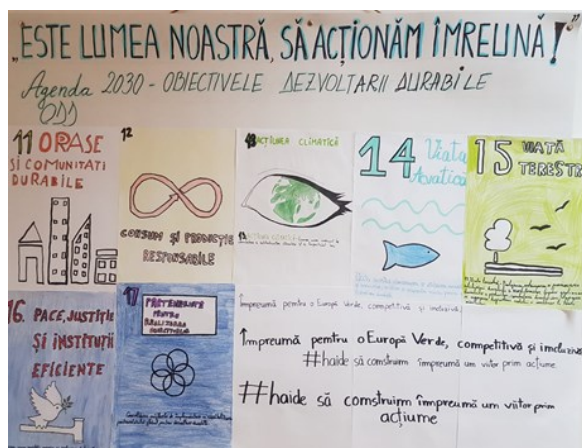 „ESTE LUMEA NOASTRĂ, SĂ ACȚIONĂM ÎMREUNĂ!”
Agenda 2030 - OBIECTIVELE DEZVOLTARII DURABILE
ODD
11 ORASE
SI COMUNITATI
DURABILE
12
CONSUM ȘI PRODUCȚIE
RESPONSABILE
13 ACȚIUNEA CLIMATICĂ
14 Viata
Acvatica
15 VIATĂ
TERESTR
16. PACE, JUSTIȚIE
ȘI INSTITUȚII
EFICIENTE
17
PARTENERIATE
PENTRU
REALIZAREA
OBIECTIVELOR
Împreumă pemtru o Europă Verde, competitivă și imcluzivă
Împreumă pemtru o Europă Verde, competitivă și imcluzivă
#haide să comstruim împreumă um viitor prim acțiume
#haide să comstruim împreumă um viitor prim
acțiume